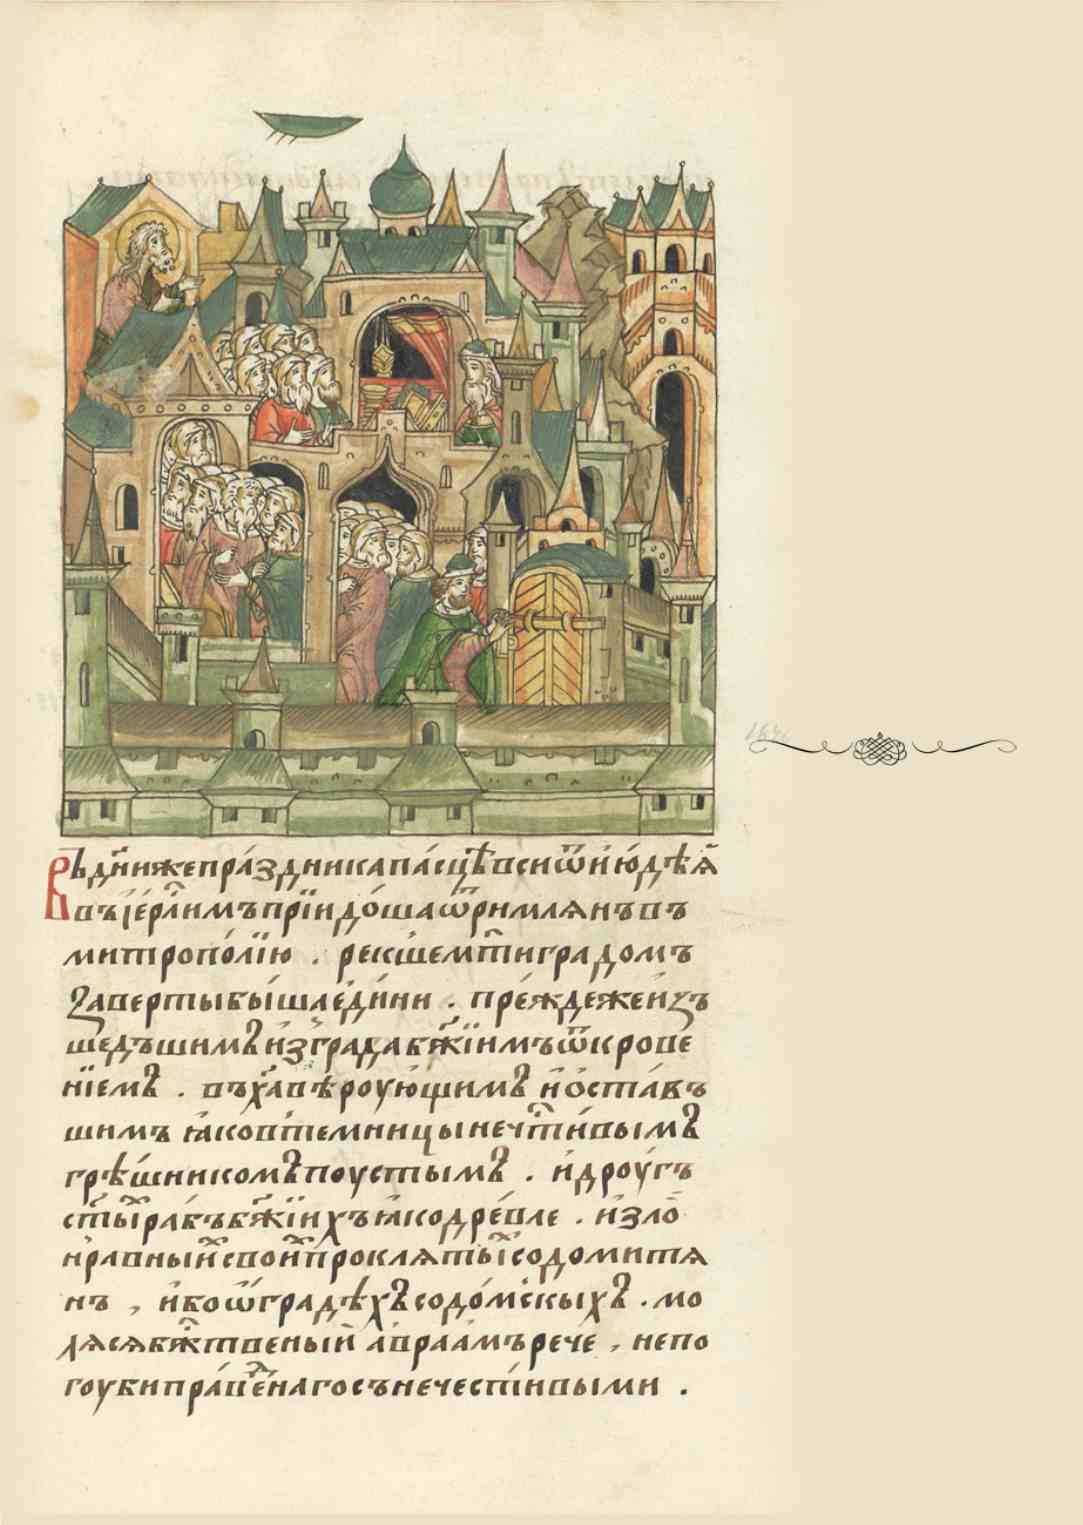 Въ дн҃и же праздника пасцѣ вси ѿ и҆ю҆дѣѧ
въ і҆ерⷭ҇лимъ прїидо́ша ѿ римлѧнъ въ
митропо́лїю . рекше мт҃и градомъ
Заверты бы́ша є҆ди́ни . пре́жде же и҆з̾
шедъшимъ и҆з̾ града бж҃їимъ ѿкрове
нїемъ . въ хⷭ҇а вѣроую́щимъ и҆ ѡ҆ста́вь
шимъ ꙗ҆ко в темницы нечⷭ҇ти́вымъ
грѣ́шникомъ поустымъ . и҆ дроугъ
ст҃ы́й рабъ бж҃їихъ ꙗ҆ко дре́вле . и҆ ѕло
нравный свой проклѧтый содомитѧ
нъ , и҆бо ѿ градѣхъ содо́мскыхъ . мо
лѧсѧ бжⷭ҇твеный а҆враа́мъ рече , не по
гоуби пра́веⷣнаго съ нечести́выми .